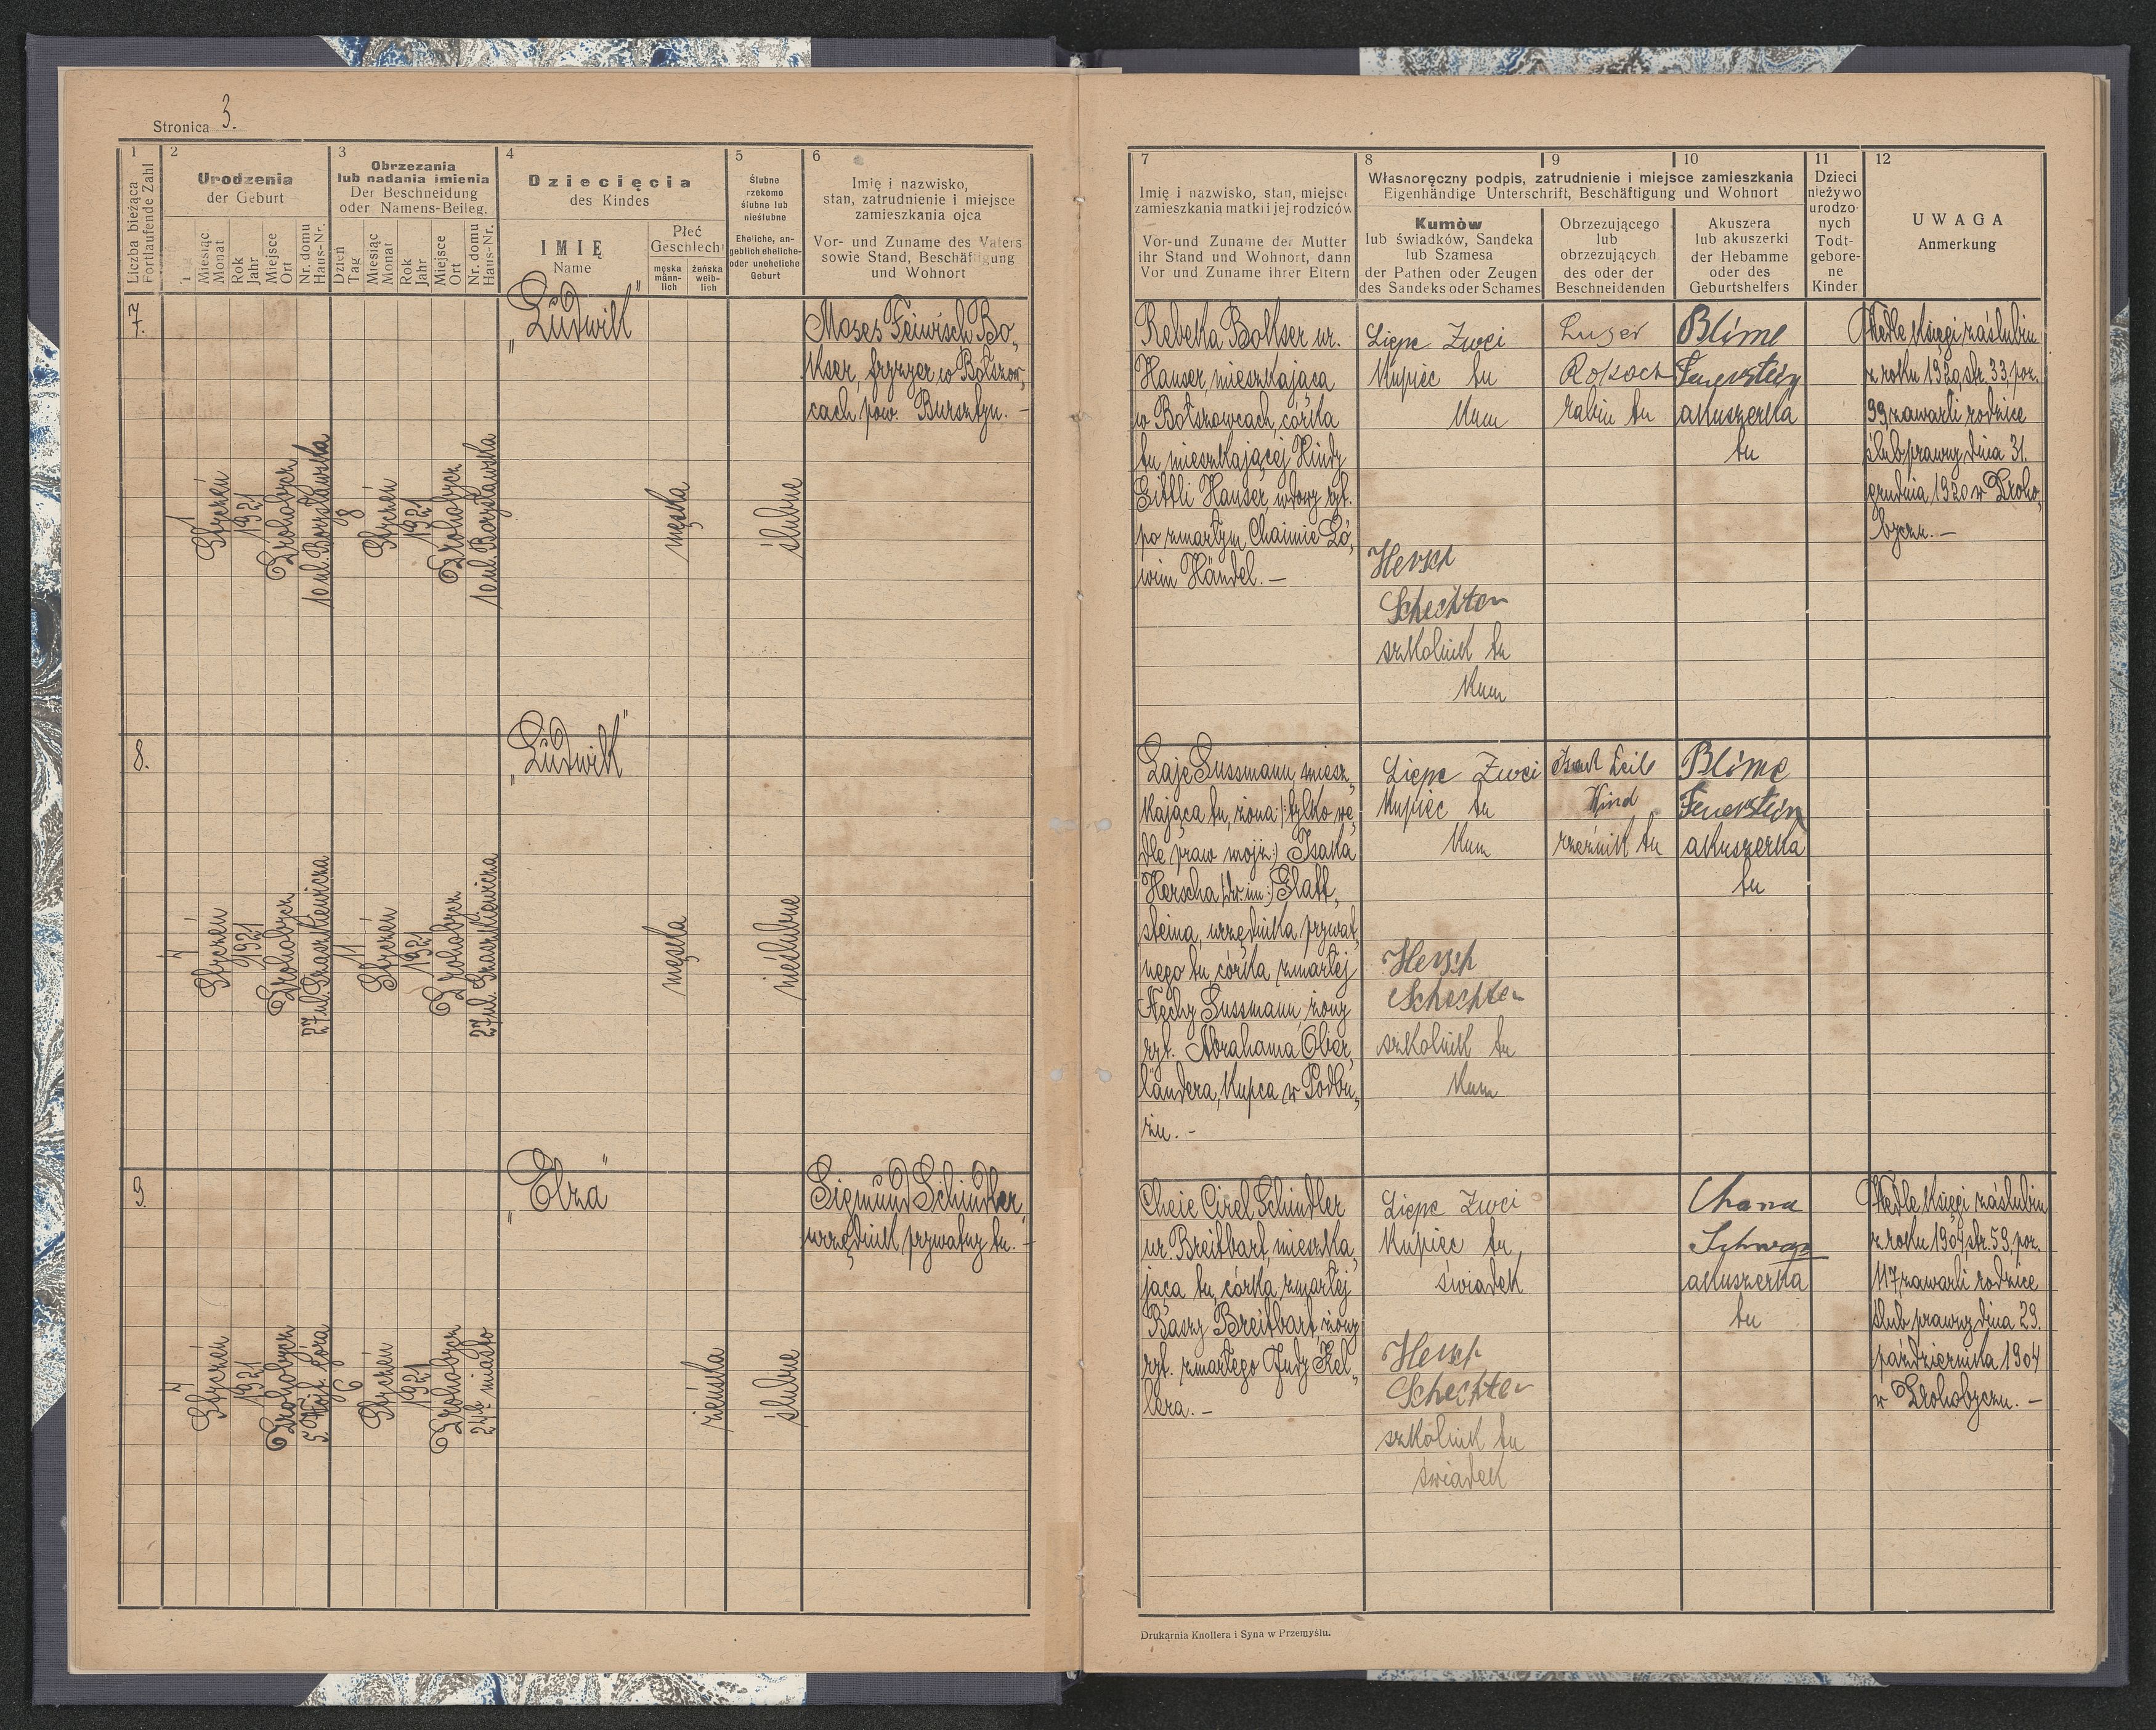 Stronica 3.
1
Liczba bieżąca
Fortlaufende Zahl
2
Urodzenia
der Geburt
Miesiąc
Monat
Rok
Jahr
Miejsce
Ort
Nr. domu
Haus-Nr.
3
Obrzezania
lub nadania imienia
Der Beschneidung
oder Namens-Beileg.
Dzień
Tag
Miesiąc
Monat
Rok
Jahr
Miejsce
Ort
Nr. domu
Haus-Nr.
4
Dziecięcia
des Kindes
IMIĘ
Name
Płeć
Geschlecht
męska
männ-
lich
żeńska
weib-
lich
5
Ślubne
rzekomo
ślubne lub
nieślubne
Eheliche, an-
geblich eheliche
oder uneheliche
Geburt
6
Imię i nazwisko,
stan, zatrudnienie i miejsce
zamieszkania ojca
Vor- und Zuname des Vaters
sowie Stand, Beschäftigung
und Wohnort
7
Imię i nazwisko, stan, miejsce
zamieszkania matki i jej rodziców
Vor-und Zuname der Mutter
ihr Stand und Wohnort, dann
Vor und Zuname ihrer Eltern
8
9
10
Własnoręczny podpis, zatrudnienie i miejsce zamieszkania
Eigenhändige Unterschrift, Beschäftigung und Wohnort
Kumów
lub świadków, Sandeka
lub Szamesa
der Pathen oder Zeugen
des Sandeks oder Schames
Obrzezującego
lub
obrzezujących
des oder der
Beschneidenden
Akuszera
lub akuszerki
der Hebamme
oder des
Geburtshelfers
11
Dzieci
nieżywo
urodzo-
nych
Todt-
gebore-
ne
Kinder
12
UWAGA
Anmerkung
7.
1
Styczeń
1921
Drohobycz
10 ul. Borysławska
8
Styczeń
1921
Drohobycz
10 ul. Borysławska
„Ludwik"
męska
ślubne
Moses Feiwisch Bo„
kser, fryzyer w Bołszow„
cach pow. Bursztyn. –
Rebeka Bokser ur.
Hauser, mieszkająca
w Bołszowcach, córka
tu mieszkającej Hindy
Gittli Hauser, wdowy ryt.
po zmarłym Chaimie Lö„
wim Händel. –
Liepe Zwei
Kupiec tu
Kum
Hersch
Schechter
szkolnik tu
Kum
Rokach
rabin tu
Blime
Feuerstein
akuszerka
tu
Wedle Księgi zaślubin
z roku 1920, str. 33, poz.
99, zawarli rodzice
ślub prawny dnia 31.
grudnia 1920 w Droho„
byczu. –
8.
4
Styczeń
1921
Drohobycz
27 ul. Szaszkiewicza
11
Styczeń
1921
Drohobycz
27 ul. Szaszkiewicza
„Ludwik"
męska
nieślubne
Laje Sussmann, miesz„
kająca tu, żona /: tylko we„
dle praw mojż :/ Isaka
Herscha /: dw. im :/ Glatt„
steina, urzędnika prywat„
nego tu, córka zmarłej
Nechy Sussmann, żony
ryt. Abrahama Ober„
ländera, kupca w Podbu„
żu. –
Liepe Zwei
Kupiec tu
Kum
Hersch
Schechter
szkolnik tu
Kum
Leib
Hind
rzeźnik tu
Blime
Feuerstein
akuszerka
tu
9.
4
Styczeń
1921
Drohobycz
5. Wójt. Góra
6
Styczeń
1921
Drohobycz
miasto
„Elza"
żeńska
ślubne
Sigmund Schindler,
urzędnik prywatny tu. –
Cheie Cirel Schindler
ur. Breitbart, mieszka„
jąca tu, córka zmarłej
Baszy Breitbart, żony
ryt. zmarłego Judy Kel„
lera. –
Liepe Zwei
Kupiec tu,
świadek
Hersch
Schechter
szkolnik tu
świadek
Chana
Schwarz
akuszerka
tu
Wedle Księgi zaślubin
z roku 1904, str. 59, poz.
117 zawarli rodzice
ślub prawny dnia 29.
października 1904
w Drohobyczu. –
Drukarnia Knollera i Syna w Przemyślu.